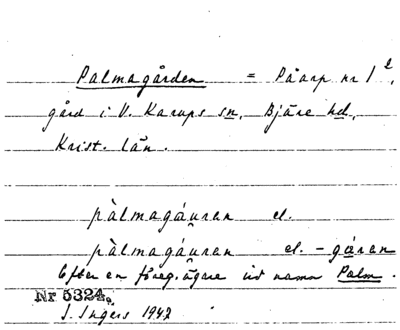 Palmagården = Påarp nr 1²,
gård i V. Karups sn, Bjäre hd,
Krist. län.
pàlmagáu̯ran el.
pàlmagáu̯ran el. -gáran
Efter en föreg. ägare vid namn Palm.
Nr 5324a
I. Ingers 1942